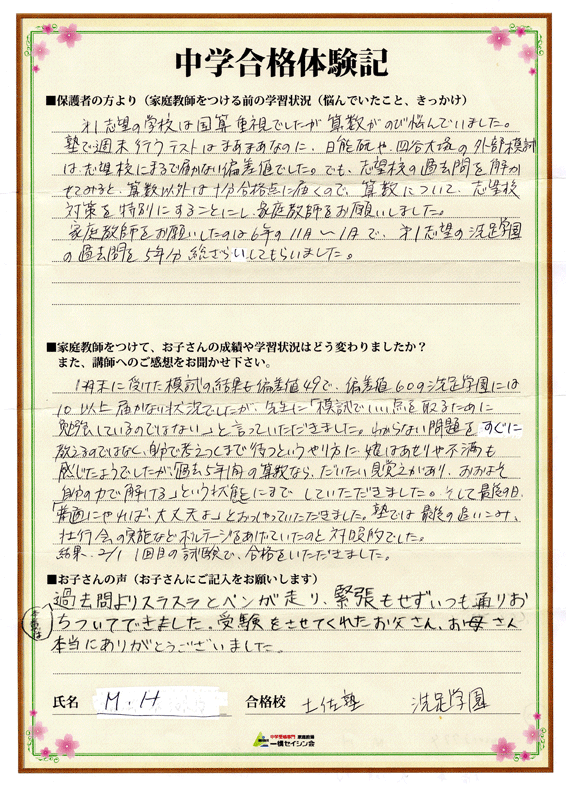 中学合格体験記
■保護者の方より（家庭教師をつける前の学習状況（悩んでいたこと、きっかけ）
第1志望の学校は国算重視でしたが算数がのび悩んでいました。
塾で週末行うテストはまあまあなのに、日能研や四谷大塚の外部模試
は志望校にまるで届かない偏差値でした。でも、志望校の過去問を解か
せてみると、算数以外は十分合格点に届くので、算数について、志望校
対策を特別にすることにし、家庭教師をお願いしました。
家庭教師をお願いしたのは6年の11月〜1月で、第1志望の洗足学園
の過去問を5年分総ざらいしてもらいました。
■家庭教師をつけて、お子さんの成績や学習状況はどう変わりましたか？
また、講師へのご感想をお聞かせ下さい。
1月末に受けた模試の結果も偏差値49で、偏差値60の洗足学園には
10以上届かない状況でしたが、先生に「模試でいい点を取るために
勉強しているのではない」と言っていただきました。わからない問題をすぐに
教えるのではなく、自分で考えつくまで待つというやり方に娘はあせりや不満も
感じたようでしたが、「過去5年間の算数なら、だいたい見覚えがあり、おおよそ
自分の力で解ける」という状態にまでしていただきました。そして最後の日、
「普通にやれば、大丈夫よ」とおっしゃっていただきました。塾では最後の追いこみ、
壮行会の実施などボルテージをあげていたのと対照的でした。
結果、2/1 1回目の試験で、合格をいただきました。
■お子さんの声（お子さんにご記入をお願いします）
過去問よりスラスラとペンが走り、緊張もせずいつも通りお
ちついてできました。受験をさせてくれたお父さん、お母さん
本当にありがとうございました。
氏名 M.H 合格校 土佐塾 洗足学園
中学受験専門 家庭教師
一橋セイシン会